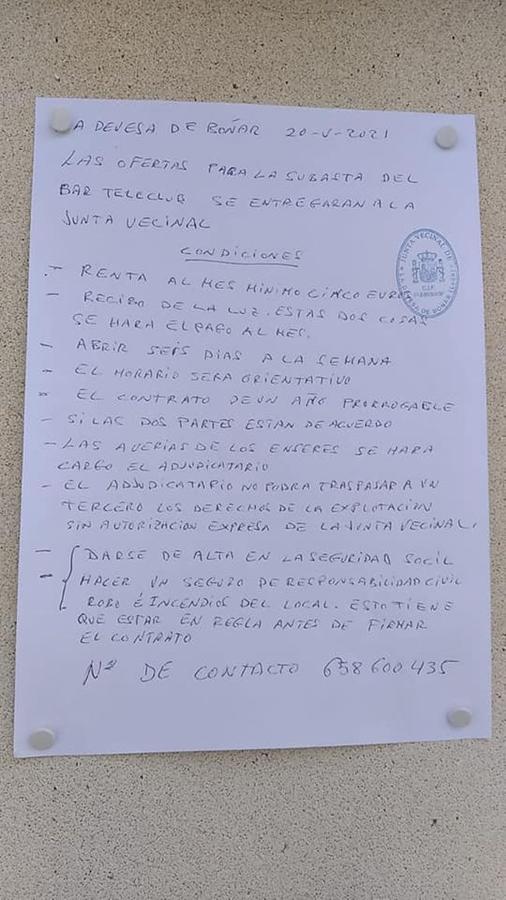 LA DEVESA DE BOÑAR 20-V-2021
LAS OFERTAS PARA LA SUBASTA DEL
BAR TELECLUB SE ENTREGARAN A LA
JUNTA VECINAL
CONDICIONES
- RENTA AL MES MINIMO CINCO EUROS
- RECIBO DE LA LUZ. ESTAS DOS COSAS
SE HARA EL PAGO AL MES.
- ABRIR SEIS DIAS A LA SEMANA
- EL HORARIO SERA ORIENTATIVO
- EL CONTRATO DE UN AÑO PRORROGABLE
- SI LAS DOS PARTES ESTAN DE ACUERDO
- LAS AVERIAS DE LOS ENSERES SE HARA
CARGO EL ADJUDICATARIO
- EL ADJUDICATARIO NO PODRA TRASPASAR A UN
TERCERO LOS DERECHOS DE LA EXPLOTACION
SIN AUTORIZACION EXPRESA DE LA JUNTA VECINAL.
- DARSE DE ALTA EN LA SEGURIDAD SOCIL
- HACER UN SEGURO DE RESPONSABILIDAD CIVIL
ROBO É INCENDIOS DEL LOCAL. ESTO TIENE
QUE ESTAR EN REGLA ANTES DE FIRMAR
EL CONTRATO
Nº DE CONTACTO 658 600 435
JUNTA VECINAL DE
C.I.F.